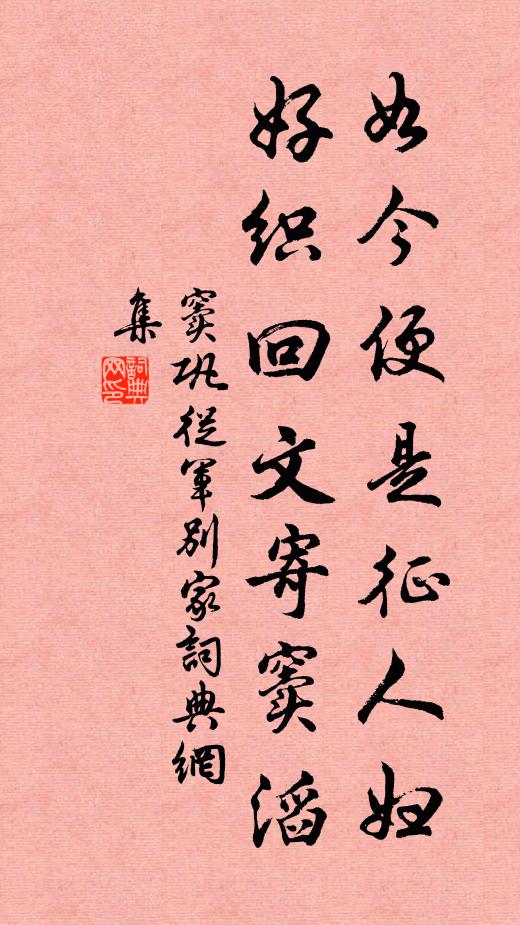 如今便是征人妇
好织回文寄窦滔
窦巩從軍别家詞典網
集
詞典
网印